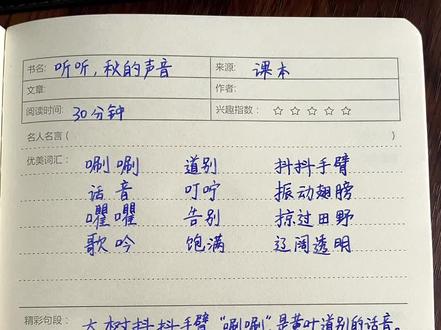 书名: 听听,秋的声音 来源: 课本
文章: 作者:
阅读时间: 30分钟 兴趣指数: ☆ ☆ ☆ ☆ ☆
名人名言 ( )
优美词汇: 唰唰 道别 抖抖手臂
话音 叮咛 振动翅膀
㘗㘗 告别 掠过田野
歌吟 饱满 辽阔透明
精彩句段: 大树抖抖手臂,“唰唰”,是黄叶道别的话音。